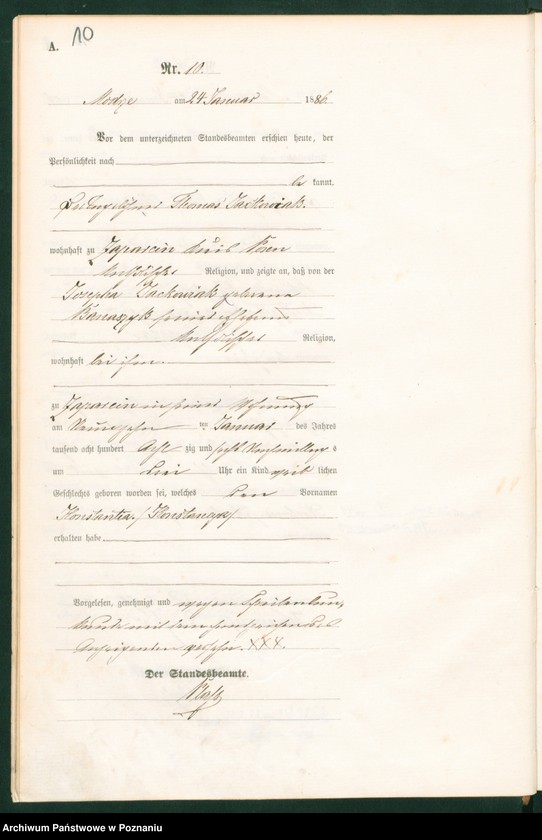 A. 10
Nr. 10.
Modze am 24 Januar 1886
Vor dem unterzeichneten Standesbeamten erschien heute, der
Persönlichkeit nach
be kannt.
Thomas Jackowiak.
wohnhaft zu Japarcin Kreis Posen
katholischer Religion, und zeigte an, daß von der
Josepha Jackowiak geborene
Banaszyk seiner Ehefrau
katholischer Religion,
wohnhaft bei ihm.
zu Japarcin in seiner Wohnung
am Neunzehn ten Januar des Jahres
tausend acht hundert Acht zig und sechs Vormittags
um drei Uhr ein Kind weib lichen
Geschlechts geboren worden sei, welches den Vornamen
Konstantia. /Konstancya/
erhalten habe
Vorgelesen, genehmigt und wegen Schreibens
mit dem Handzeichen des
Anzeigenden versehn. XXX.
Der Standesbeamte.
Archiwum Państwowe w Poznaniu